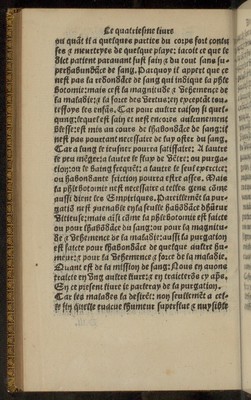 Le quatriesme liure
ou quāt il a quelques parties du corps sont contu
ses & meurtryes de quelque playe: iacoit et que le
dict patient parauant fust sain & du tout sans su
perhabundāce de sang. Parquoy il appert que ce
nest pas la redondāce de sang qui indique la phle
botomie: mais cest la magnitude & vehemence de
la maladie: & la force des vertus: y exceptāt tou
tesfoys les enfās. Car pour aultre raison si quel-
qung: lequel est sain et nest encores aulcunement
blesse: est mis au cours de lhabondāce de sang: il
nest pas pourtant necessaire de luy oster du sang.
Car a lung le ieusner pourra satiffaire: A laultre
le peu mēger: a lautre le flup de Vētre: ou purga
tion: ou le baing frequēt: a lautre le seul exercice:
ou habondante friction pourra estre asses. Mais
la phlebotomie nest necessaire a telles gens cōme
aussi dient les Empiriques. Pareillemēt la pur-
gatiō nest prenable en la seulle habōdāce dhumeur
Vitieuse: mais aīsi cōme la phlebotomie est faicte
ou pour lhabondāce du sang: ou pour la magnitu-
de & vehemence de la maladie: aussi la purgation
est faicte pour lhabondāce de quelque aultre hu-
meur: & pour la vehemence & force de la maladie.
Quant est de la mission de sang: Nous en auons
traicte en vng aultre liure: & en traicterōs cy aps.
En ce present liure ie parleray de la purgation.
Car les malades la desirēt: non seullemēt a cel-
le fin quelle euacue lhumeur superflue & nuysible